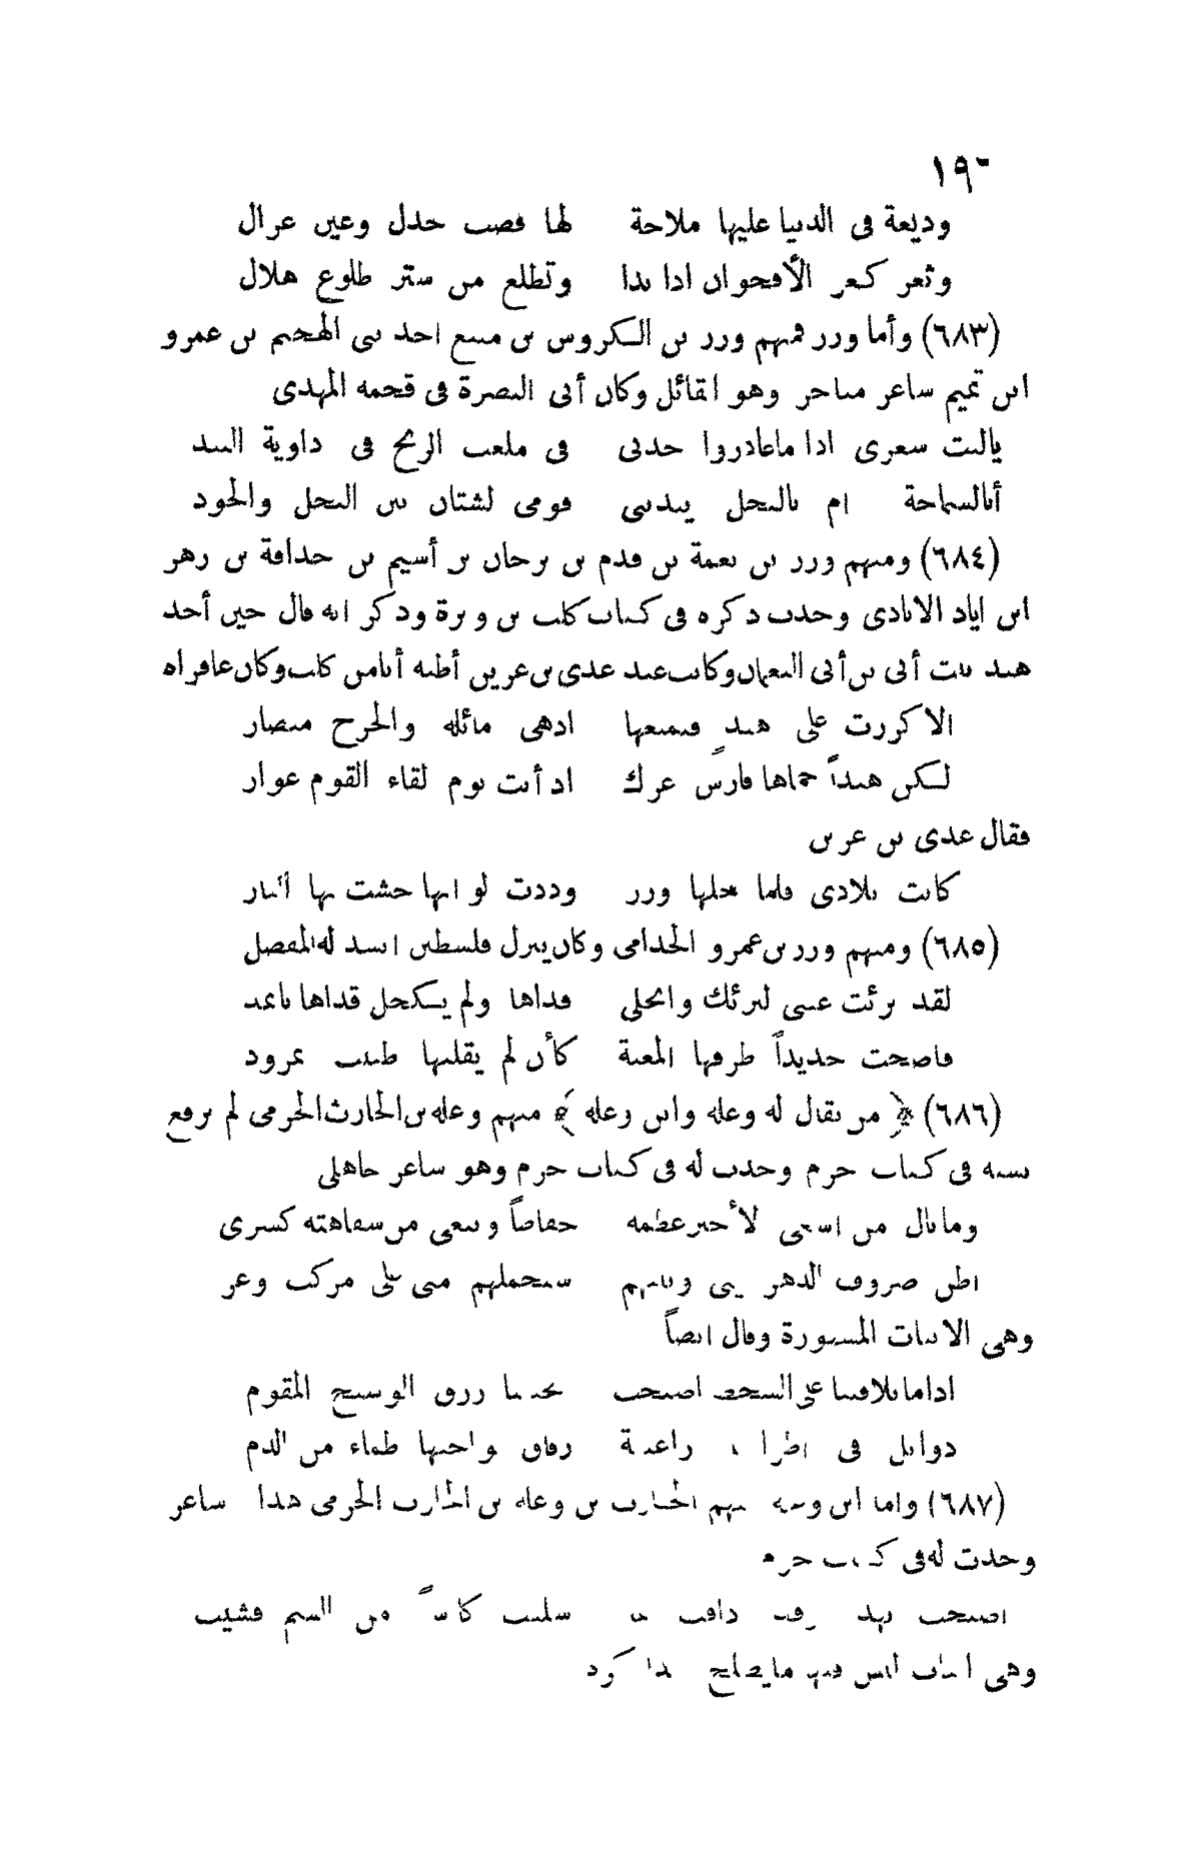 ١٩
وديعة فى الدنيا عليها ملاحة لها قصب خدل وعين غزال
وثغر كـ الأقحوان اذا بدا وتطلع من ستر طلوع هلال
(٦٨٣) وأما ورد فمنهم ورد بن الكروس بن منيع احد بنى الهجيم بن عمرو
ابن تميم شاعر وهو القائل وكان أتى البصرة فى قحمه المهدى
ياليت شعرى اذا ماغادروا جدثى فى ملعب الريح فى داوية البيد
أبالسماحة ام بالبخل يندبنى قومى لشتان بين البخل والجود
(٦٨٤) ومنهم ورد بن نعمة بن قدم بن برجان بن أسيم بن حذافة بن زهر
ابن اياد الايادى وجدت ذكره فى كتاب كلب بن وبرة وذكر انه قال حين أخذ
هند بنت أبى بن أبى النعمان وكانت عند عدى بن عرين أظنه أيامن كلب وكان
الا كررت على هندٍ فتمنعها اذهى مائله والجرح
لكن هنداً حماها فارس عرك اذ أنت يوم لقاء القوم عوار
فقال عدى بن عرين
كانت بلادى فلما حلها ورد وددت لو انها حشت بها النار
(٦٨٥) ومنهم ورد بن عمرو الجذامى وكان ينزل فلسطين انشد له المفضل
لقد برئت عينى لبرئك وانجلى قذاها ولم يكحل قذاها باثمد
فاصحت حديداً طرفها كأن لم يقلبها طبيب بمرود
(٦٨٦) ﴿ من يقال له وعلة وابن وعلة ﴾ منهم وعلة بن الحارث الجرمى لم يرفع
نسبه فى كتاب جرم وجدت له فى كتاب جرم وهو شاعر جاهلى
ومابال من اسعى لأجبر عظمه حفاظاً وينوى من سفاهته كسرى
اظن صروف الدهر بينى وبينهم ستحملهم منى على مركب وعر
وهى الابيات المشهورة وقال ايضاً
اذاماتلاقينا على اصبحت الوشيج المقوم
ذوابل فى رقاق نواحيها ظماء من الدم
(٦٨٧) واما ابن وعلة منهم الحارث بن وعلة بن الحارث الجرمى هذا شاعر
وجدت له فى كتاب جرم
اصبحت سلبت من السم قشيب
وهى ابيات ليس فيها مايصلح